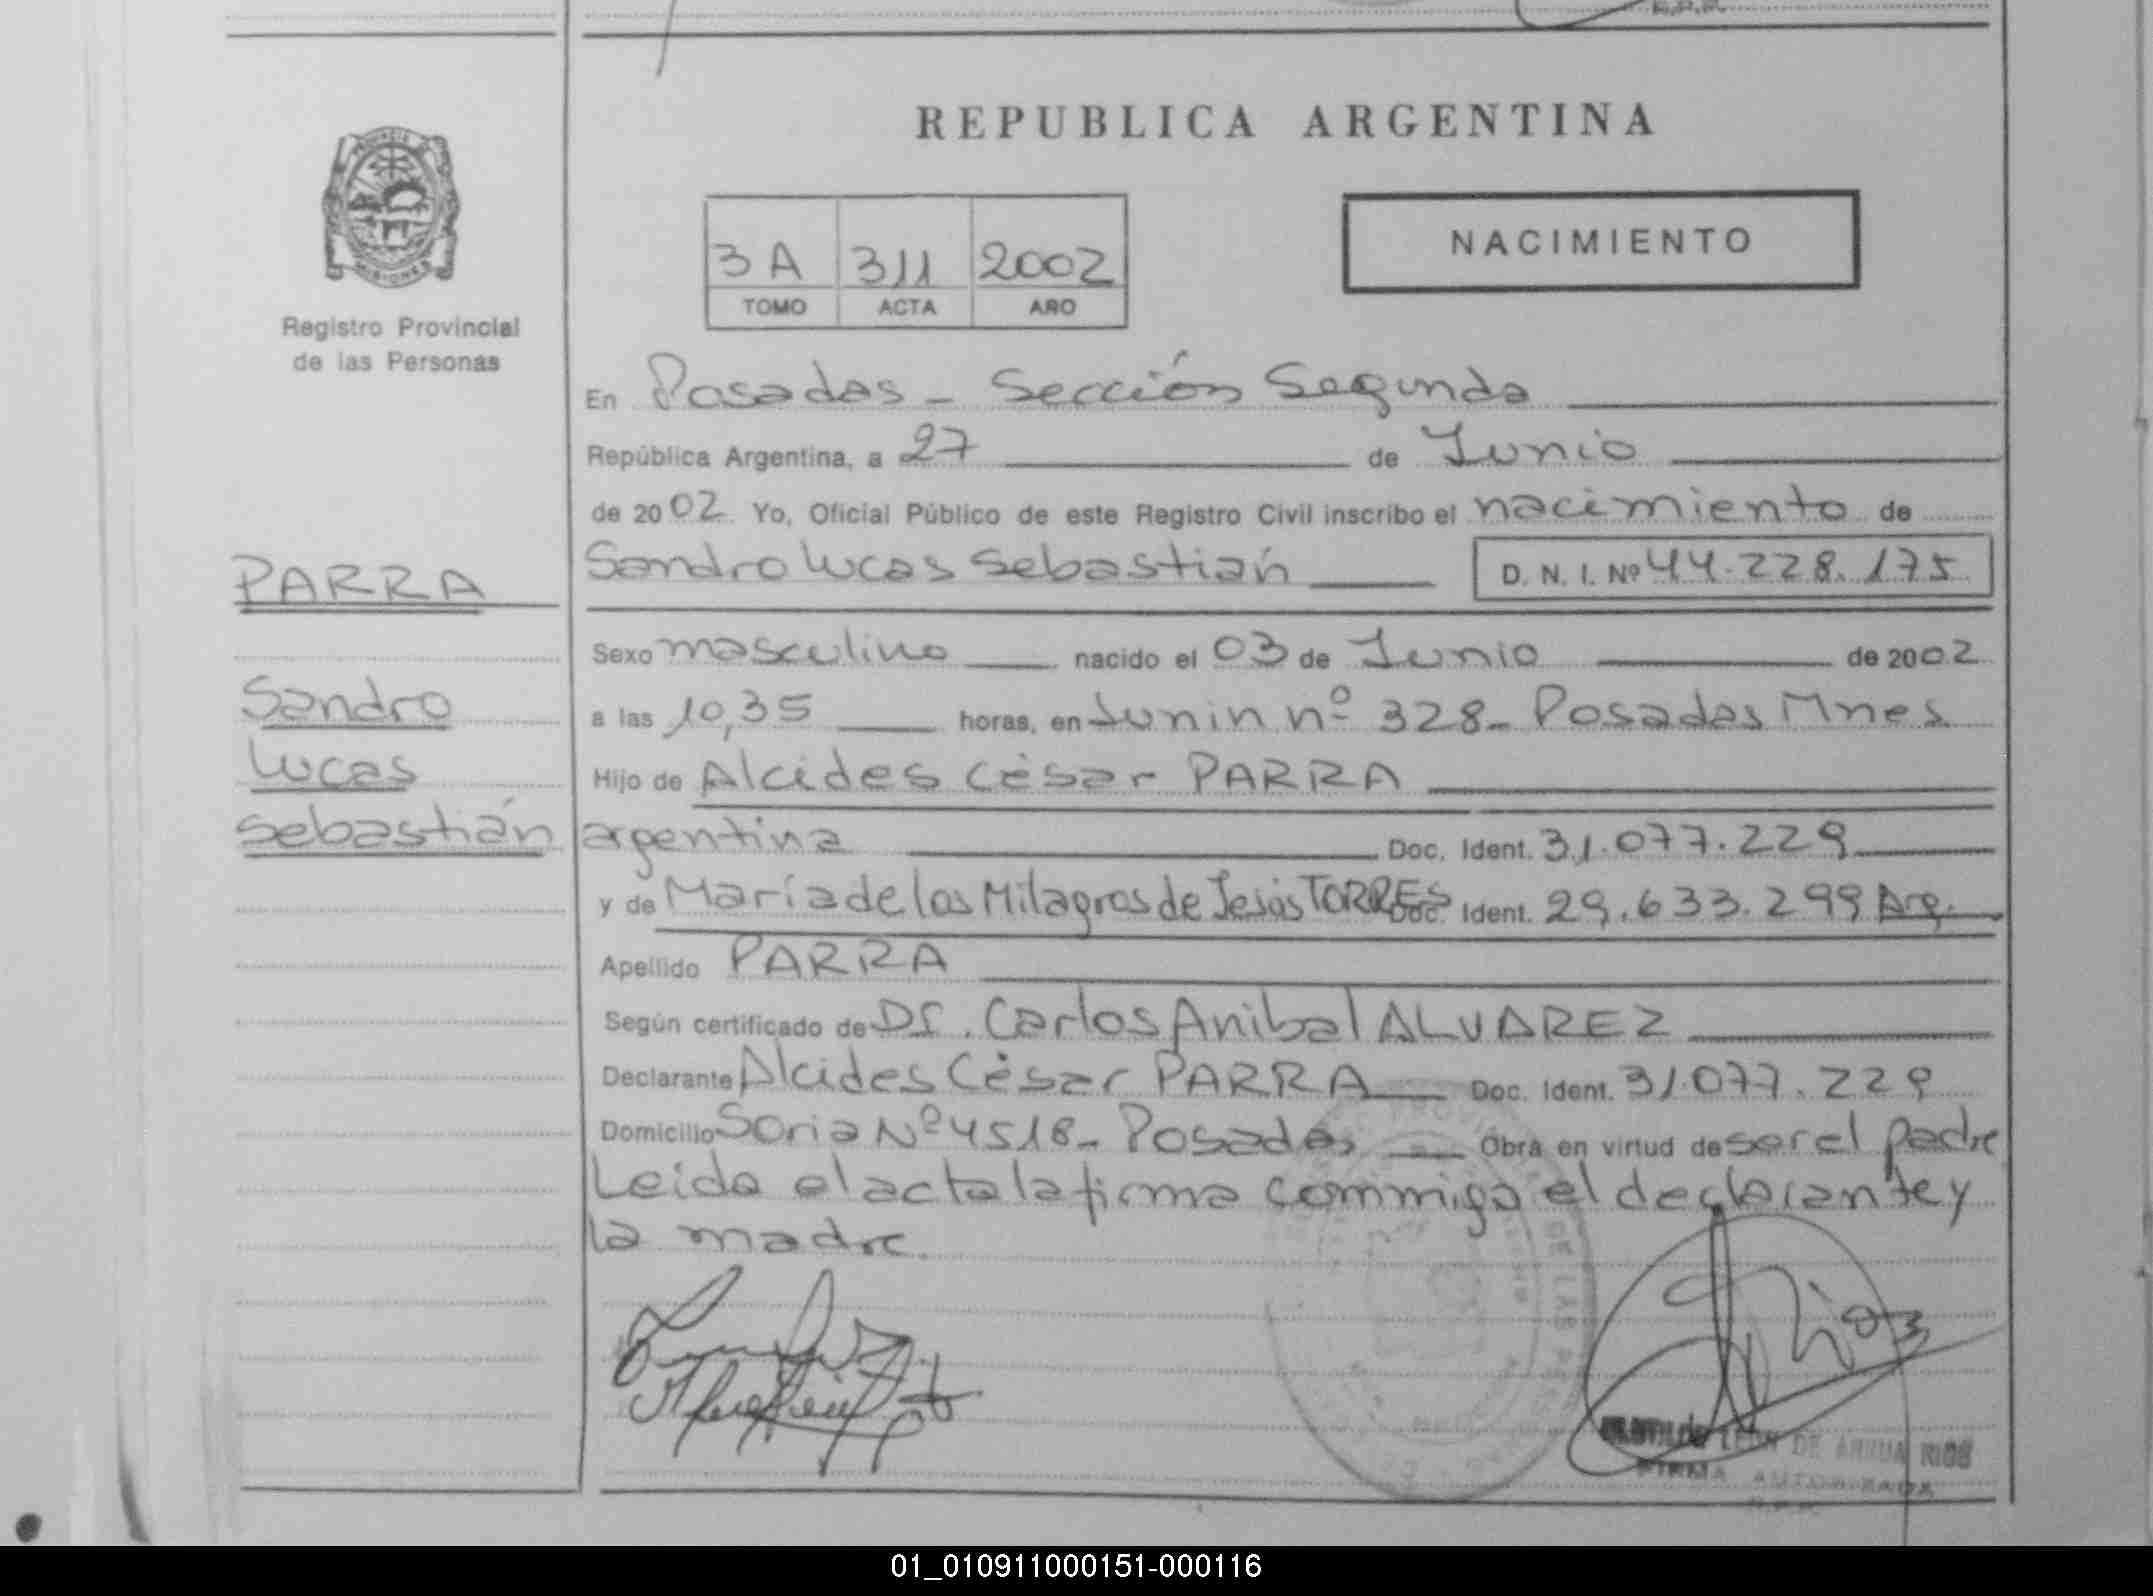 R.P.P.
REPUBLICA ARGENTINA
PROVINCIA DE
MISIONES
Registro Provincial
de las Personas
3A 311 2002
TOMO ACTA AÑO
NACIMIENTO
En Posadas - Sección Segunda
República Argentina, a 27 de Junio
de 2002 Yo, Oficial Público de este Registro Civil inscribo el nacimiento de
Sandro Lucas Sebastián D. N. I. Nº 44.228.175
PARRA
Sandro
Lucas
Sebastián
Sexo masculino nacido el 03 de Junio de 2002
a las 10,35 horas, en Junin nº 328- Posadas Mnes
Hijo de Alcides César PARRA
argentina Doc. Ident. 31.077.229
y de María de los Milagros de Jesús TORRES Doc. Ident. 29.633.299 Arg.
Apellido PARRA
Según certificado de Dr. Carlos Anibal ALVAREZ
Declarante Alcides César PARRA Doc. Ident. 31.077.229
Domicilio Soria Nº 4518- Posadas Obra en virtud de ser el padre
Leida el acta la firma commigo el declarante y
la madre.
DE LAS
LEON DE ARRUA RIOS
FIRMA AUTORIZADA
R.P.P.
01_010911000151-000116